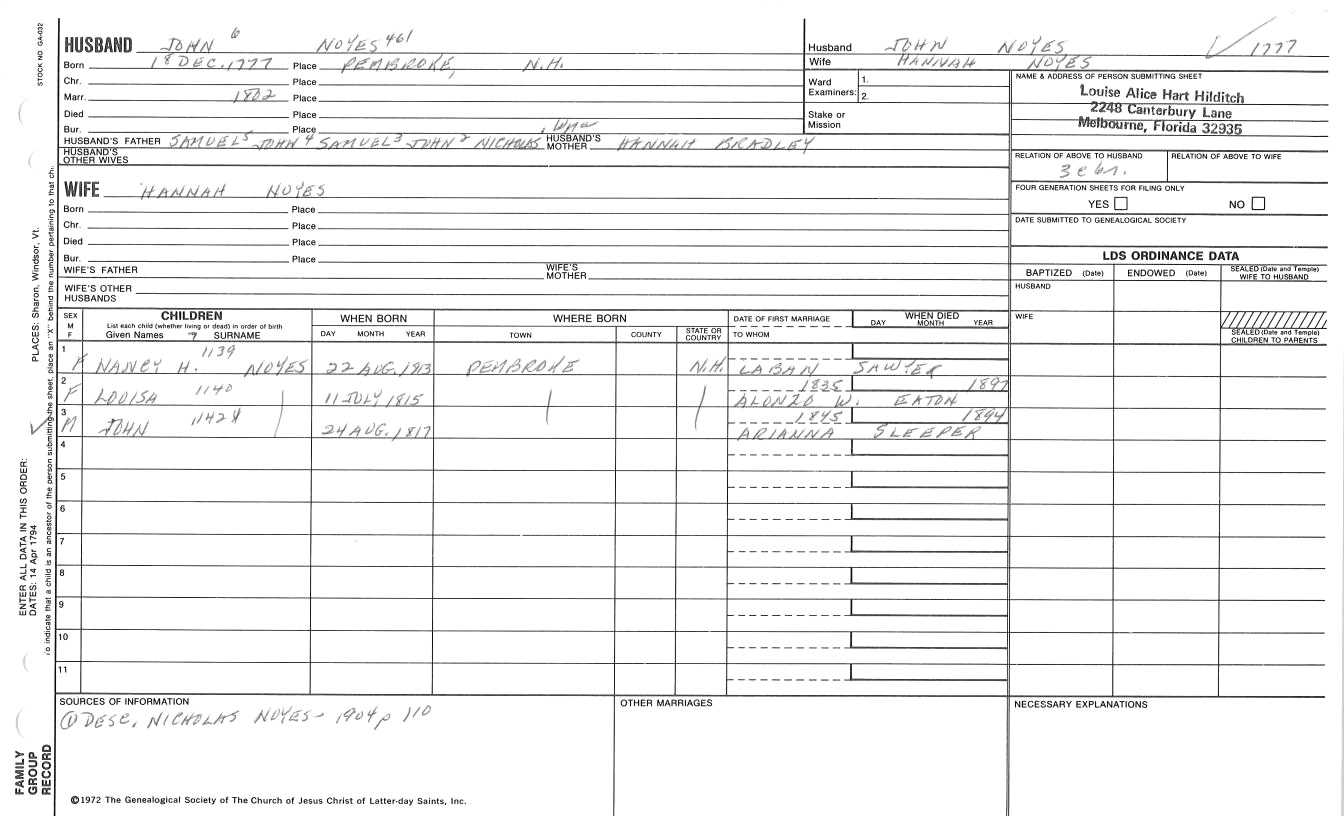 STOCK NO GA-032
PLACES: Sharon, Windsor, Vt.
ENTER ALL DATA IN THIS ORDER:
DATES: 14 Apr 1794
To indicate that a child is an ancestor of the person submitting the sheet, place an "X" behind the number pertaining to that ch
FAMILY GROUP RECORD
HUSBAND JOHN 6 NOYES 461
Born 18 DEC. 1777 Place PEMBROKE, N.H.
Chr. Place
Marr. 1802 Place
Died Place
Bur. Place
HUSBAND'S FATHER SAMUEL5 JOHN4 SAMUEL3 JOHN2 NICHOLAS HUSBAND'S MOTHER HANNAH BRADLEY
HUSBAND'S OTHER WIVES
WIFE HANNAH NOYES
Born Place
Chr. Place
Died Place
Bur. Place
WIFE'S FATHER WIFE'S MOTHER
WIFE'S OTHER HUSBANDS
Husband JOHN NOYES 1777
Wife HANNAH NOYES
Ward Examiners: 1. 2.
Stake or Mission
NAME & ADDRESS OF PERSON SUBMITTING SHEET
Louise Alice Hart Hilditch
2248 Canterbury Lane
Melbourne, Florida 32935
RELATION OF ABOVE TO HUSBAND RELATION OF ABOVE TO WIFE
FOUR GENERATION SHEETS FOR FILING ONLY
YES NO
DATE SUBMITTED TO GENEALOGICAL SOCIETY
LDS ORDINANCE DATA
BAPTIZED (Date) ENDOWED (Date) SEALED (Date and Temple) WIFE TO HUSBAND
HUSBAND
WIFE
SEALED (Date and Temple) CHILDREN TO PARENTS
SEX M F CHILDREN WHEN BORN WHERE BORN DATE OF FIRST MARRIAGE WHEN DIED
List each child (whether living or dead) in order of birth
Given Names 7 SURNAME DAY MONTH YEAR TOWN COUNTY STATE OR COUNTRY TO WHOM DAY MONTH YEAR
1 F NANCY H. 1139 NOYES 22 AUG. 1813 PEMBROKE N.H. LABAN SAWYER
2 F LOUISA 1140 11 JULY 1815 1835 1897 ALONZO W. EATON
3 M JOHN 1142 24 AUG. 1817 1845 1894 ARIANNA SLEEPER
4
5
6
7
8
9
10
11
SOURCES OF INFORMATION OTHER MARRIAGES NECESSARY EXPLANATIONS
① DESC. NICHOLAS NOYES - 1904 p 110
©1972 The Genealogical Society of The Church of Jesus Christ of Latter-day Saints, Inc.